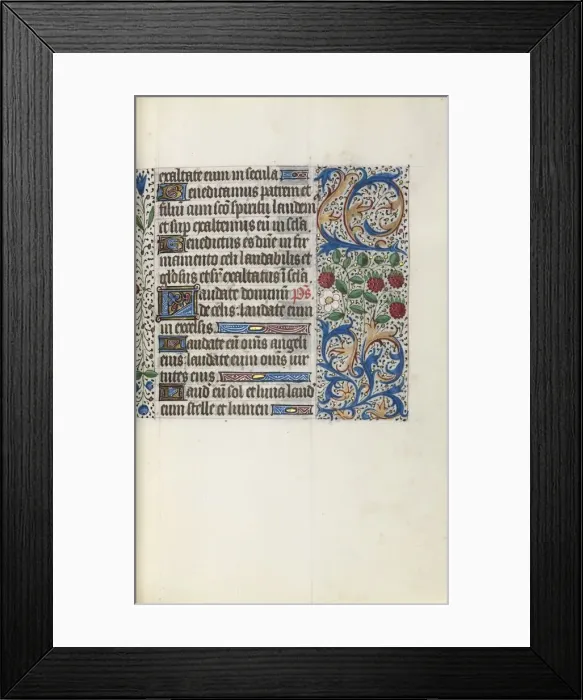 exaltate eum in secula
Benedicamus patrem et
filiu cum sco spiritu laudem
et sup exaltemus eu in scla
Benedictus es dne in fir
mamento celi laudabilis et
glosus et sr exaltatus i scla
Laudate dominu ps.
de celis: laudate eum
in excelsis
Laudate eu oms angeli
eius: laudate eum oms uir
tutes eius
Laud eu sol et luna laud
eum stelle et lumen